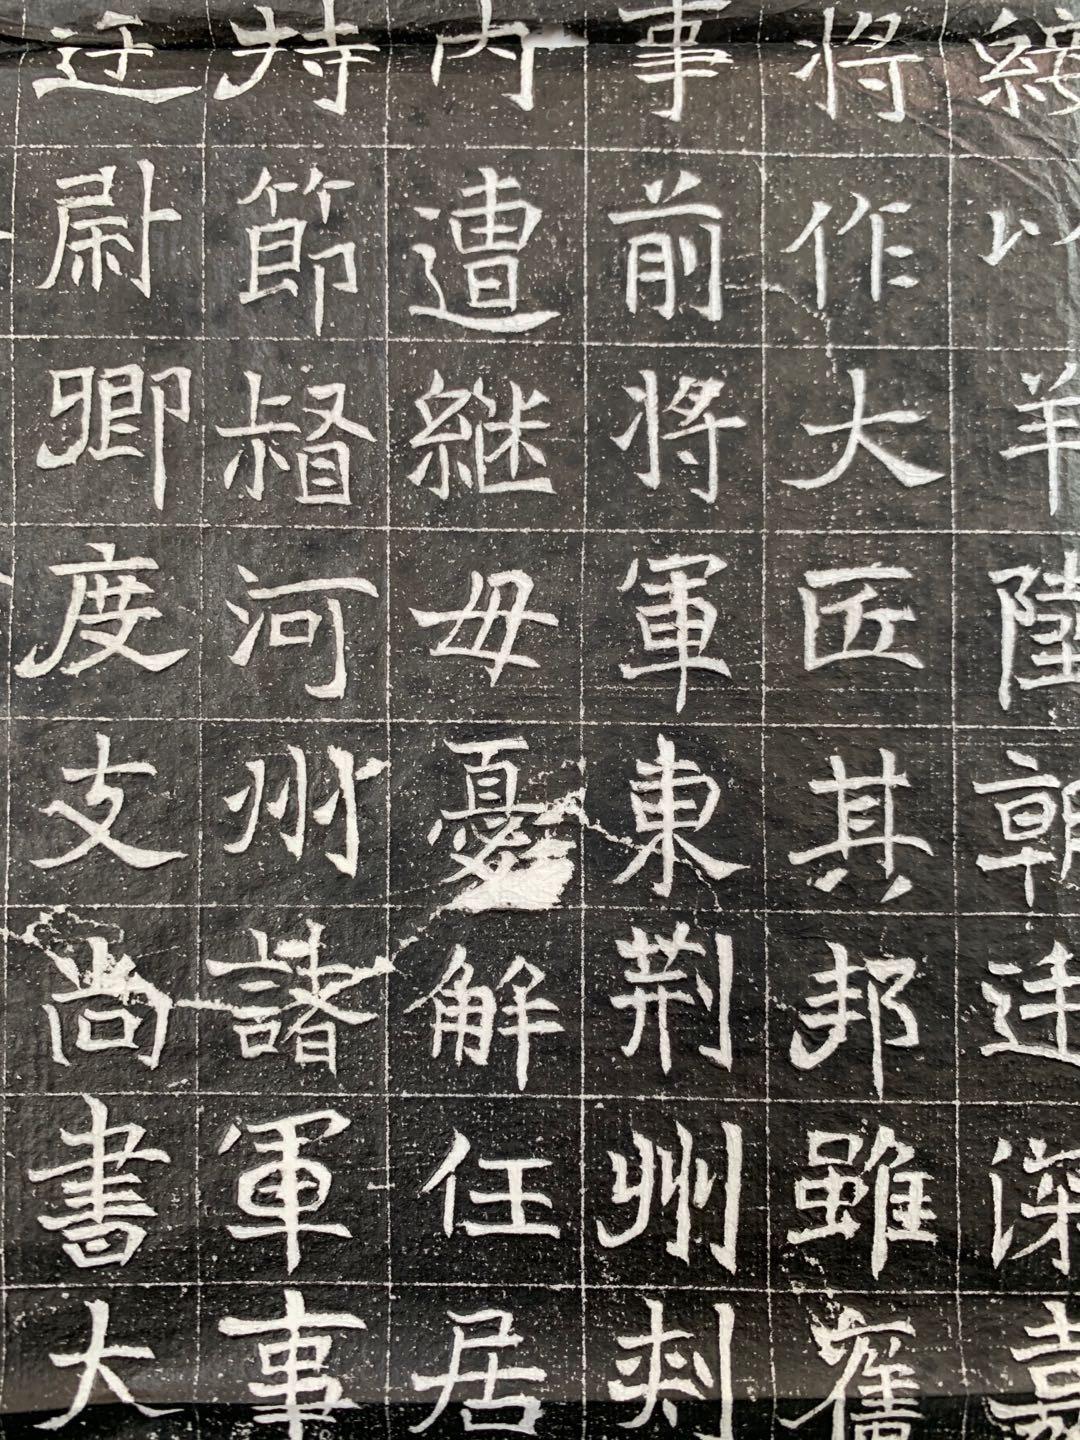 綏以羊陸朝廷深嘉
将作大匠其邦雖舊
事前将軍東荆州刾
内遭継母憂解任居
持節督河州諸軍事
迁尉卿度支尚書大